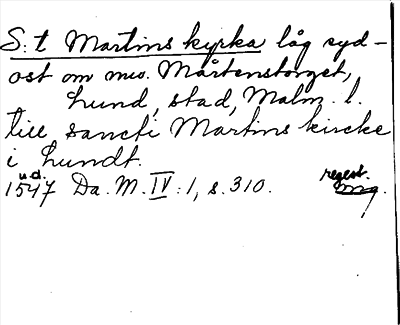 S:t Martins kyrka låg syd-
ost om nuv. Mårtenstorget,
Lund, stad, Malm. l.
till sancti Martins kircke
i Lundt.
u.d.
1547 Da. M. IV:1, s. 310.
regest.
mg.